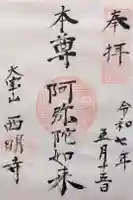 奉拝
令和七年
五月十二日
本尊
阿弥陀如来
西明寺